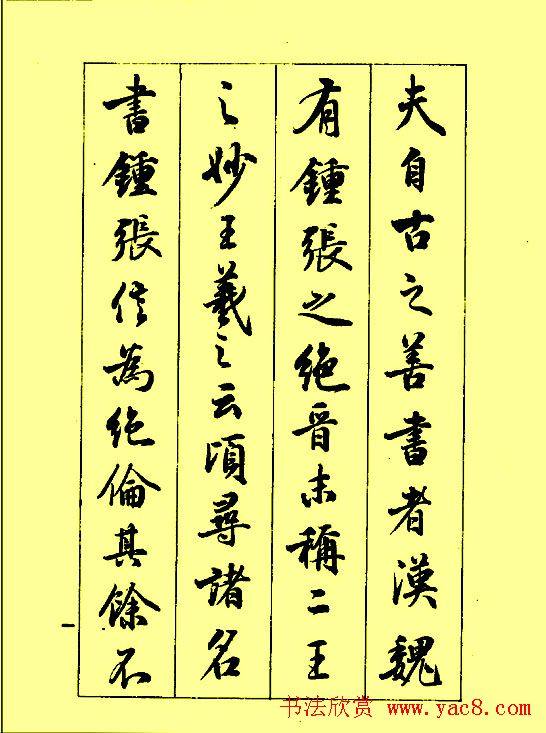 夫自古之善書者漢魏
有鍾張之絕晉末稱二王
之妙王羲之云頃尋諸名
書鍾張信為絕倫其餘不
一
书法欣赏 www.yac8.com